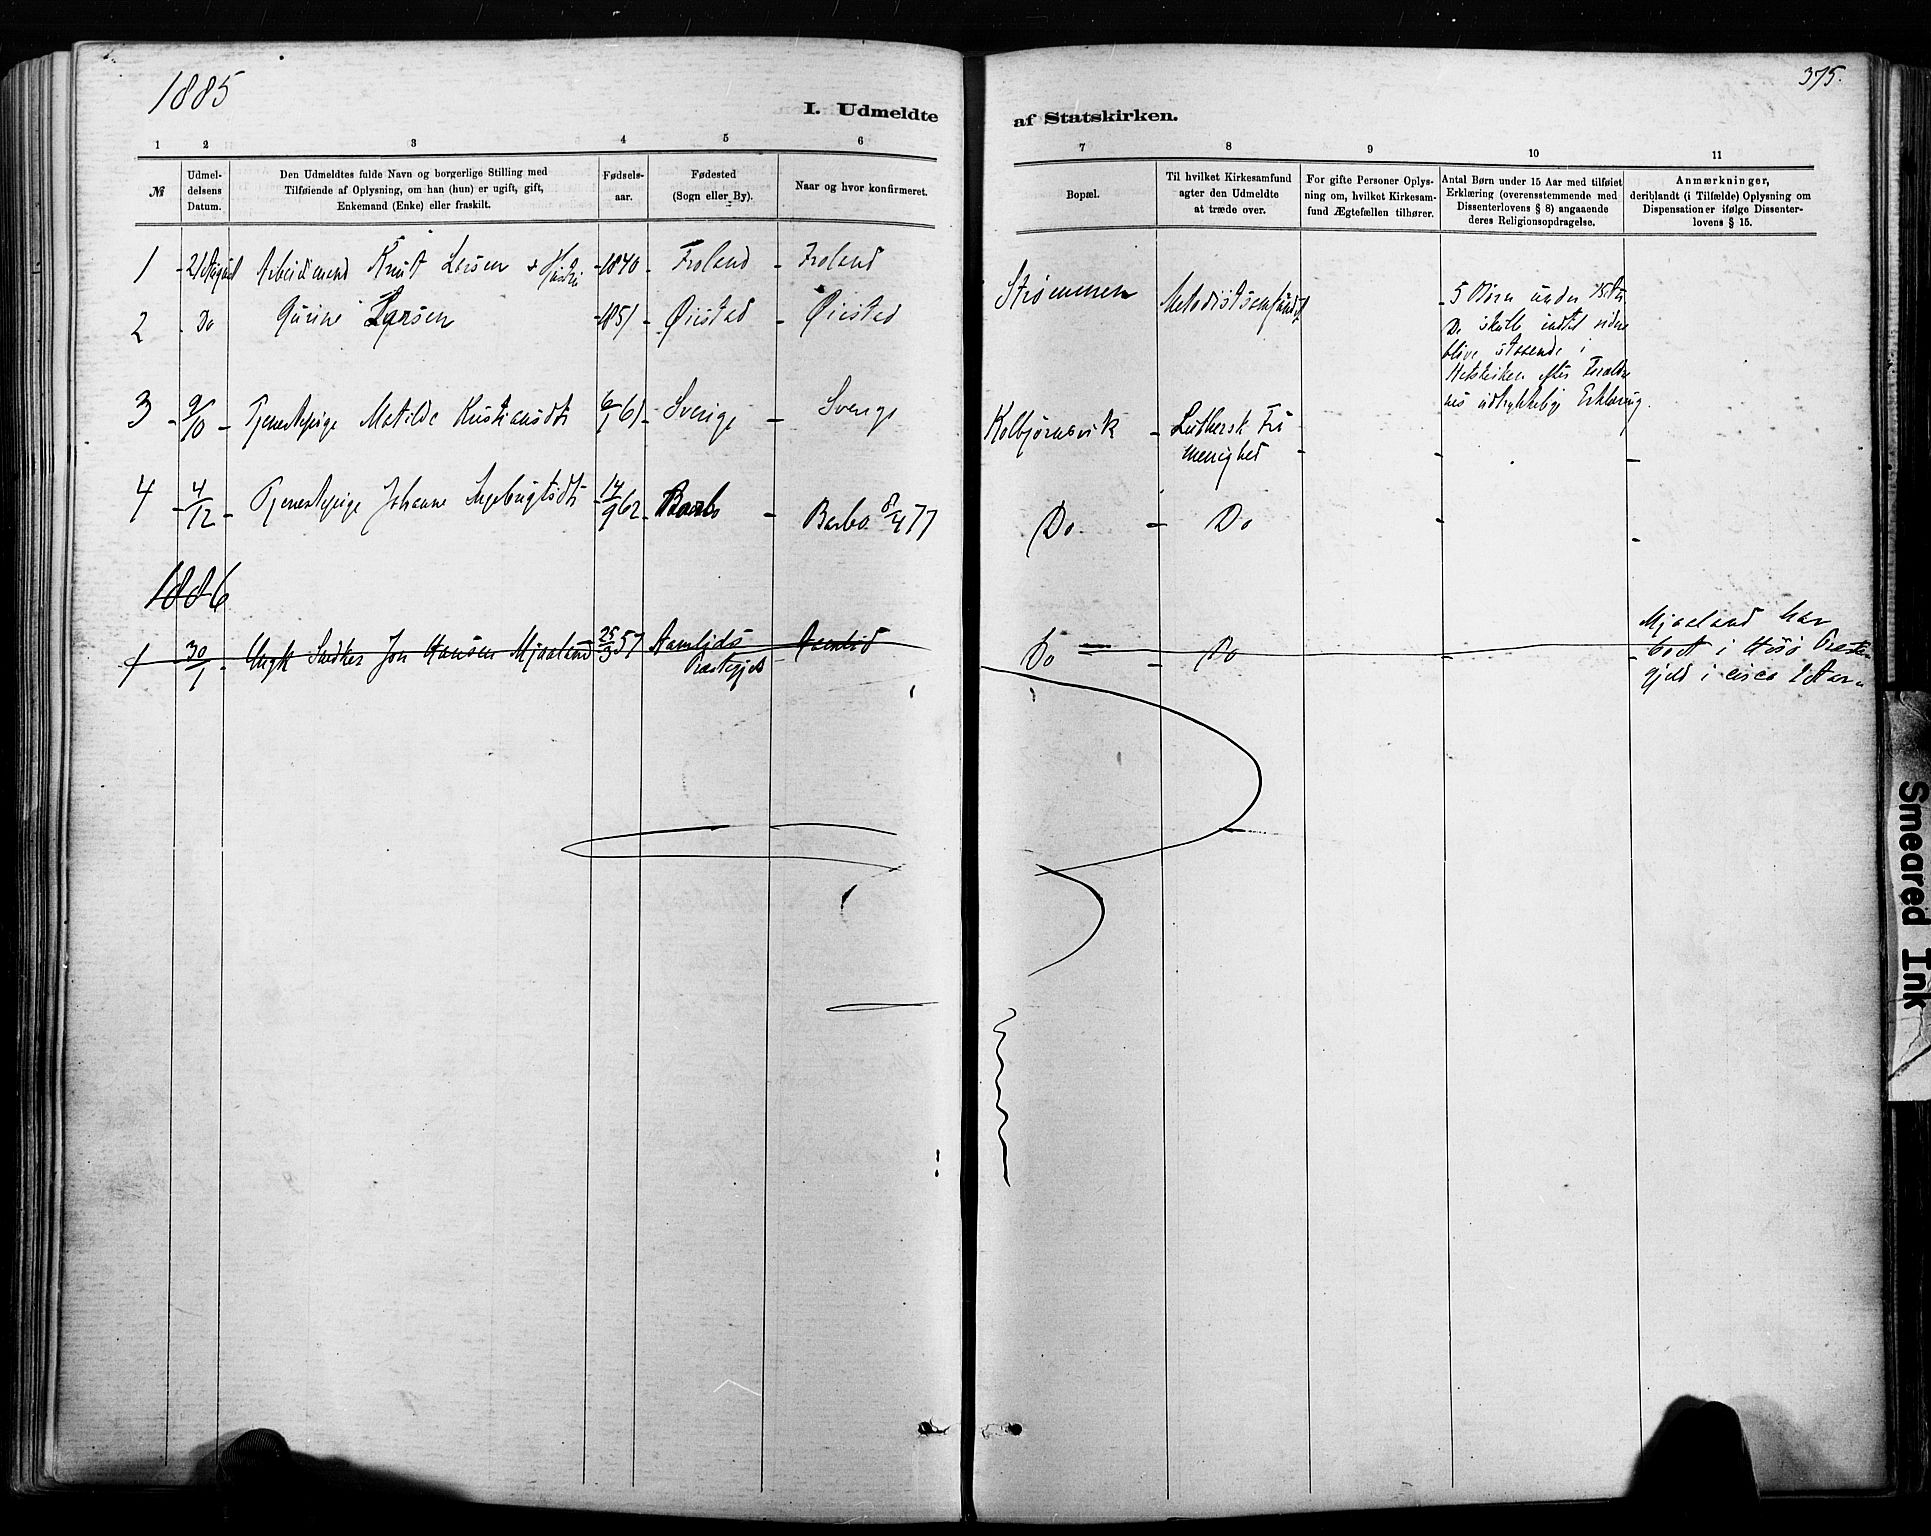 1885
375.
I. Udmeldte af Statskirken.
1 2 3 4 5 6 7 8 9 10 11
№
Udmel-
delsens
Datum.
Den Udmeldtes fulde Navn og borgerlige Stilling med
Tilføiende af Oplysning, om han (hun) er ugift, gift,
Enkemand (Enke) eller fraskilt.
Fødsels-
aar.
Fødested
(Sogn eller By).
Naar og hvor konfirmeret.
Bopæl.
Til hvilket Kirkesamfund
agter den Udmeldte
at træde over.
For gifte Personer Oplys-
ning om, hvilket Kirkesam-
fund Ægtefællen tilhører.
Antal Børn under 15 Aar med tilføiet
Erklæring (overensstemmende med
Dissenterlovens § 8) angaaende
deres Religionsopdragelse.
Anmærkninger,
deriblandt (i Tilfælde) Oplysning om
Dispensationer ifølge Dissenter-
lovens § 15.
1 - 21 August Arbeidsmand Knut Larsen + Hustru - 1840 - Froland - Froland
2 - Do Gurine Larsen - 1851 - Øiestad - Øiestad
Strømmen Metodistsamfundet
- 5 Børn under 15 Aar
De skulle indtil videre
blive staaende i
Statskirken efter Forældre
nes udtrykkelige Erklæring.
3 - 9/10 - Tjenestepige Matilde Kristiansdtr 6/1 61 - Sverige - Sverige
Kolbjørnsvik - Luthersk Fri
menighed
4 - 4/12 - Tjenestepige Johanne Ingebrigtsdtr - 14/9 62 - Barbo - Barbo 8/4 77
Do - Do
1886
1 30/1 - Ungk Snedker Jon Hansen Mjaaland 25/3 57 Aamlids
Præstegjeld
Aamlid
Do - Do
Mjaaland har
boet i Hisø Præste-
gjeld i circa 1 Aar.
Smeared Ink